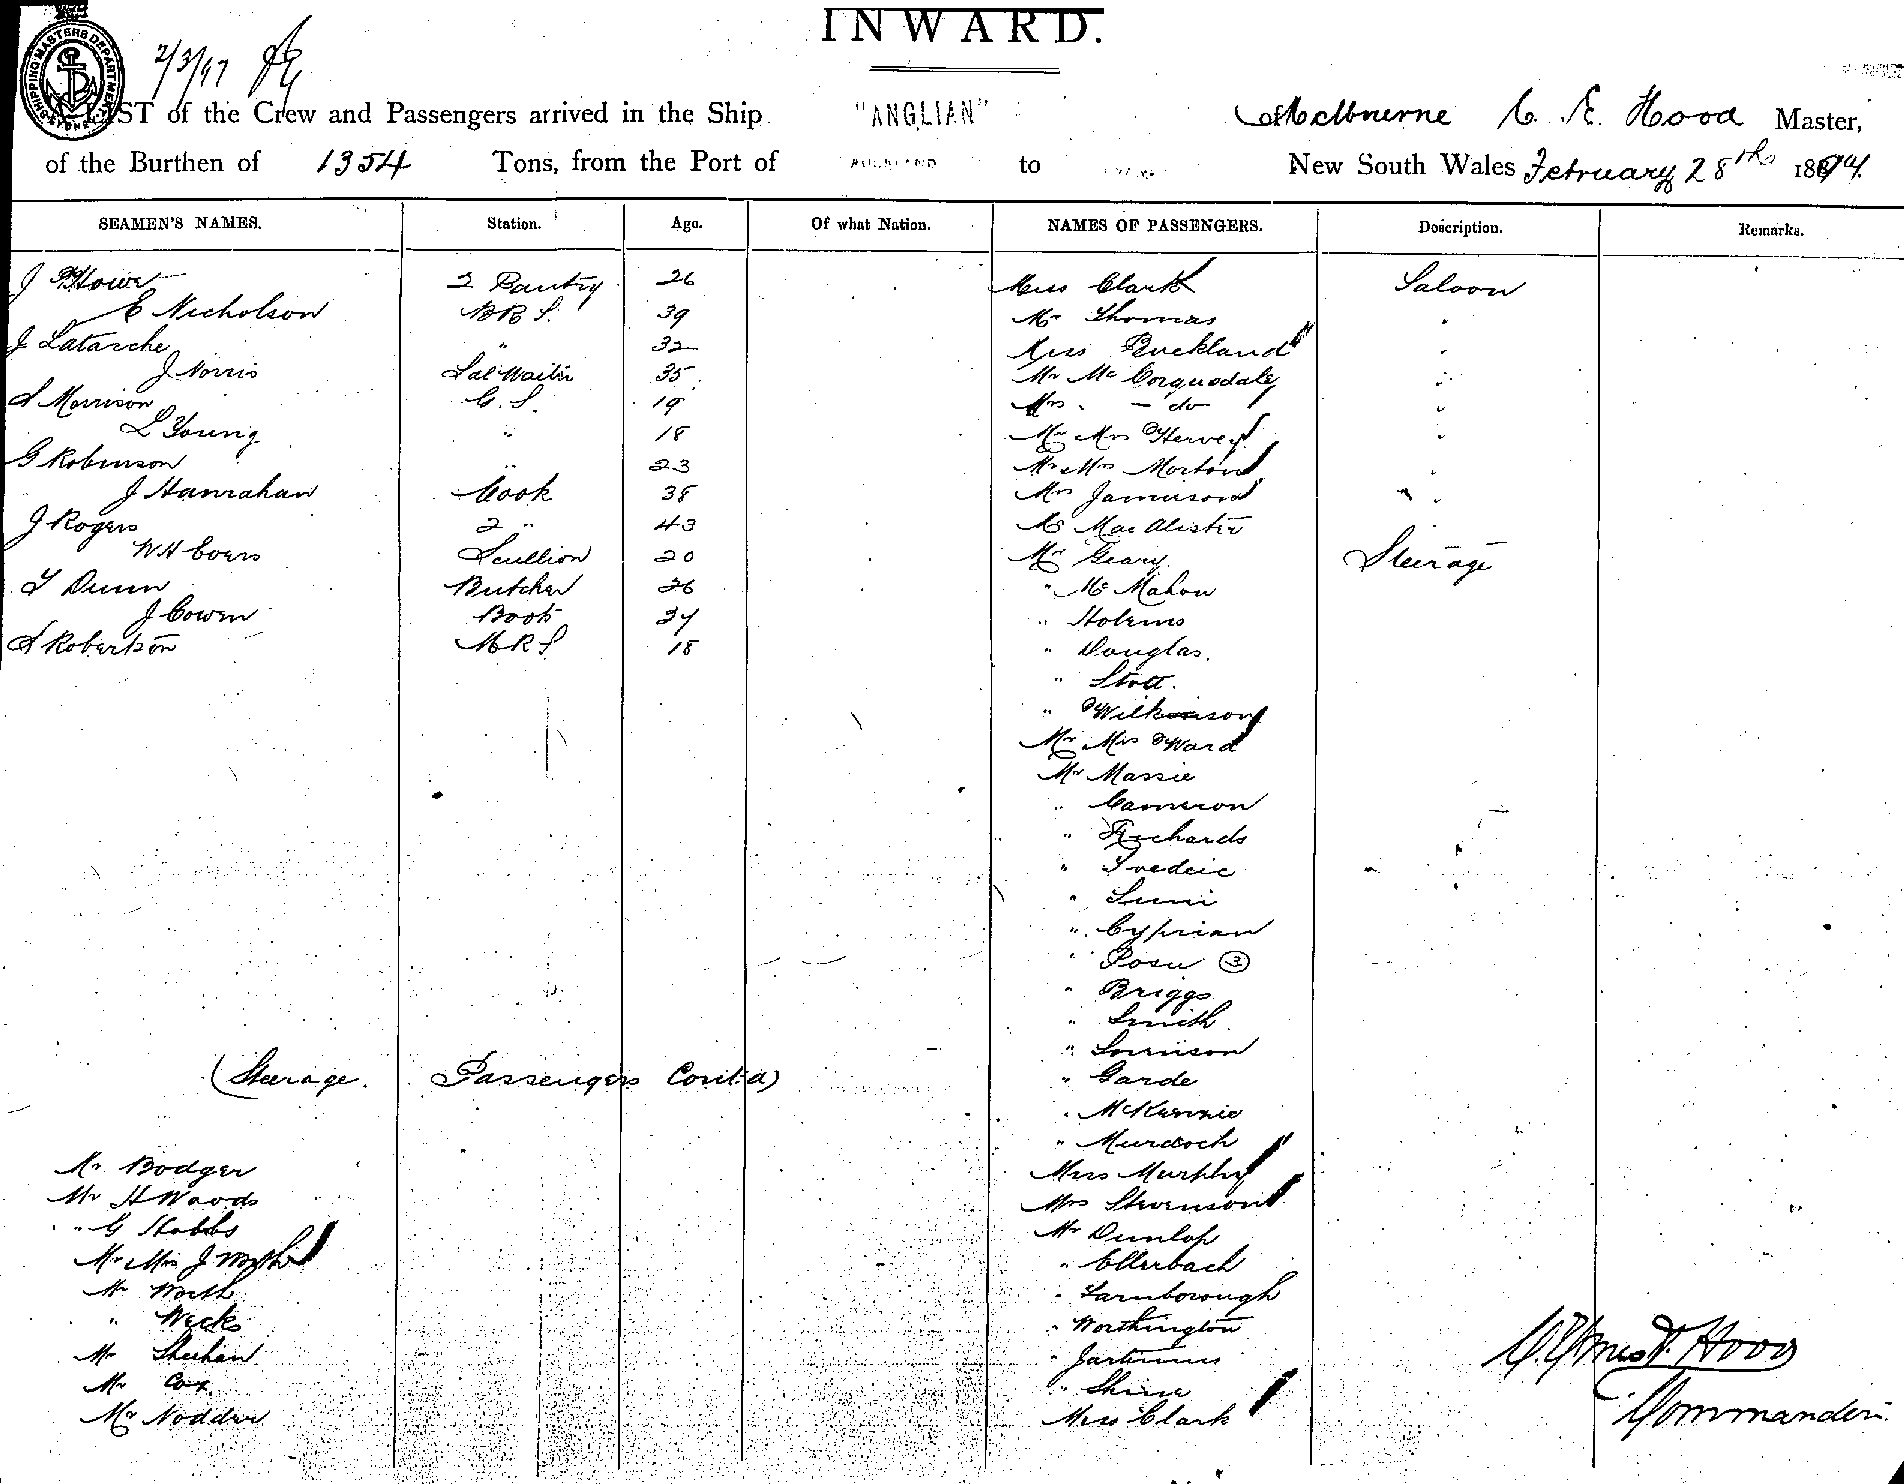 INWARD.
SHIPPING MASTERS DEPARTMENT SYDNEY
2/3/97
LIST of the Crew and Passengers arrived in the Ship "ANGLIAN" Melbourne C. E. Hood Master,
of the Burthen of 1354 Tons, from the Port of AUCKLAND to New South Wales February 28th 189
SEAMEN'S NAMES. Station. Age. Of what Nation. NAMES OF PASSENGERS. Description. Remarks.
J Howe 2 Pantry 26 Miss Clark Saloon
E Nicholson BRS. 39 Mr Thomas "
J Latarche " 32 Miss Buckland "
J Norris Sal Waiter 35 Mr Mc Corquodaly "
S Morrison G. S. 19 Mrs - do "
L Young " 18 Mr Mrs Hervey "
G Robinson " 23 Mr Mrs Morton "
J Hanrahan Cook 38 Mrs Jamieson "
J Rogers 2 " 43 Mr MacAlister
WH Coers Scullion 20 Mr Geary Steerage
T Dunn Butcher 26 " Mc Mahon
J Cowen Boots 34 " Holems
S Robertson MRS 18 " Douglas.
" Stott.
" Wilkinson
Mr Mrs Ward
Mr Massie
" Cameron
" Richards
" Fredric
"
" Cyprian
" Posu (3)
" Briggs
" Smith
" Sorinson
(Steerage. Passengers Contd) " Garde
" McKennie
" Murdoch
Mr Bodger Miss Murphy
Mr H Woods Mrs Stevenson
" G Stobbs Mr Dunlop
Mr Mrs J " Ellerbach
Mr Worth " Farnborough
" Weeks " Worthington
Mr Sheehan "
Mr Cox " Shine
Mr Nodder Miss Clark
C. Ernest Hood
Commander.